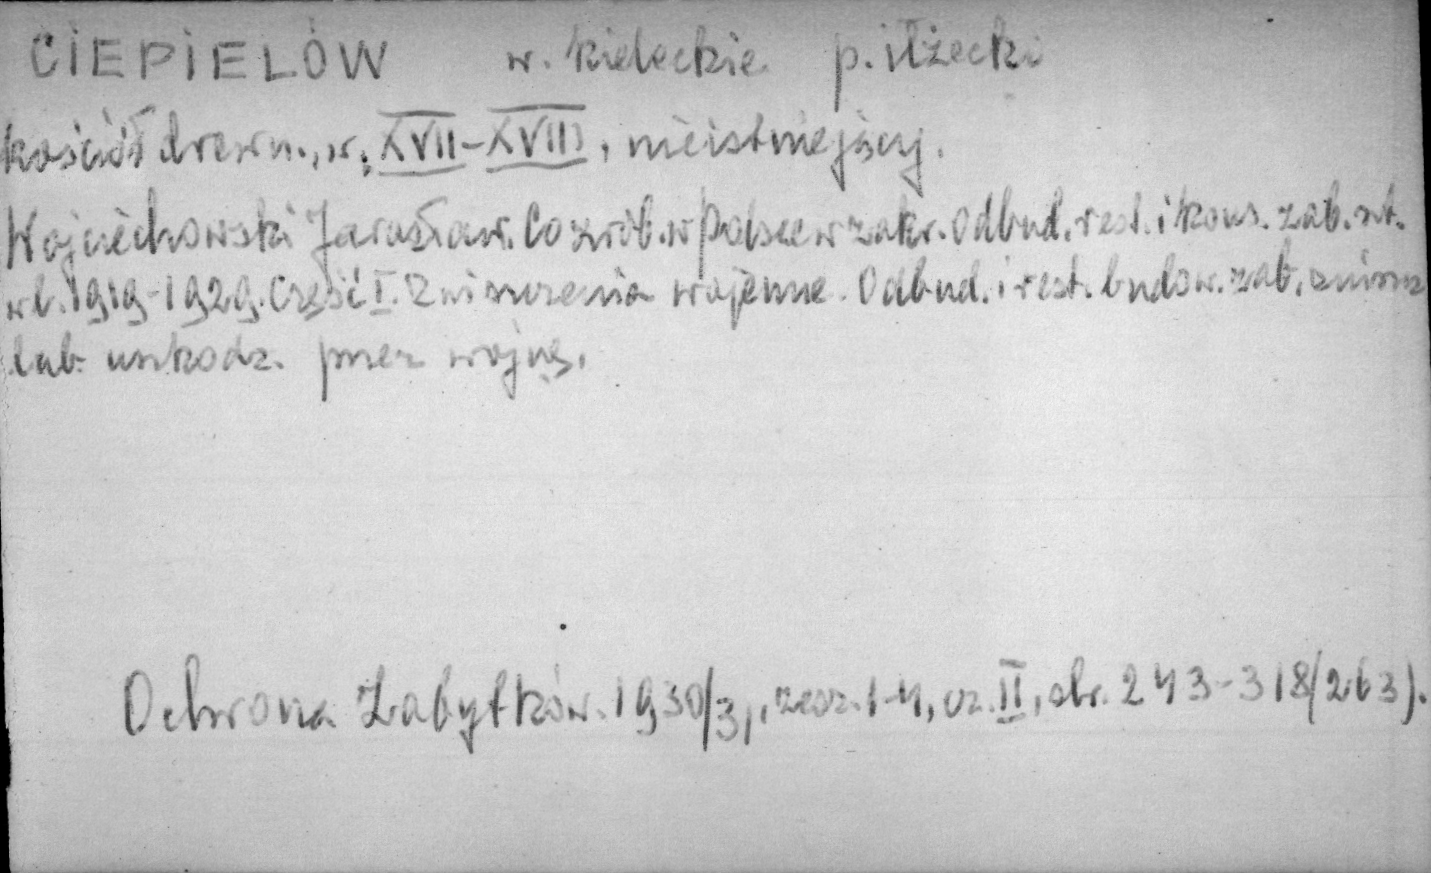 CIEPIELÓW w. kieleckie p. iłżecki
kościół drewn., w. XVII-XVIII, nieistniejący.
Wojciechowski Jarosław. Co zrob. w Polsce w zakr. odbud. rest. i kons. zab. szt.
w l. 1919-1929. Część I. Zniszczenia wojenne. Odbud. i rest. budow. zab. zniszcz
lub uszkodz. przez wojnę.
Ochrona Zabytków. 1930/31, zesz. 1-4, cz. II, str. 243-318/263).